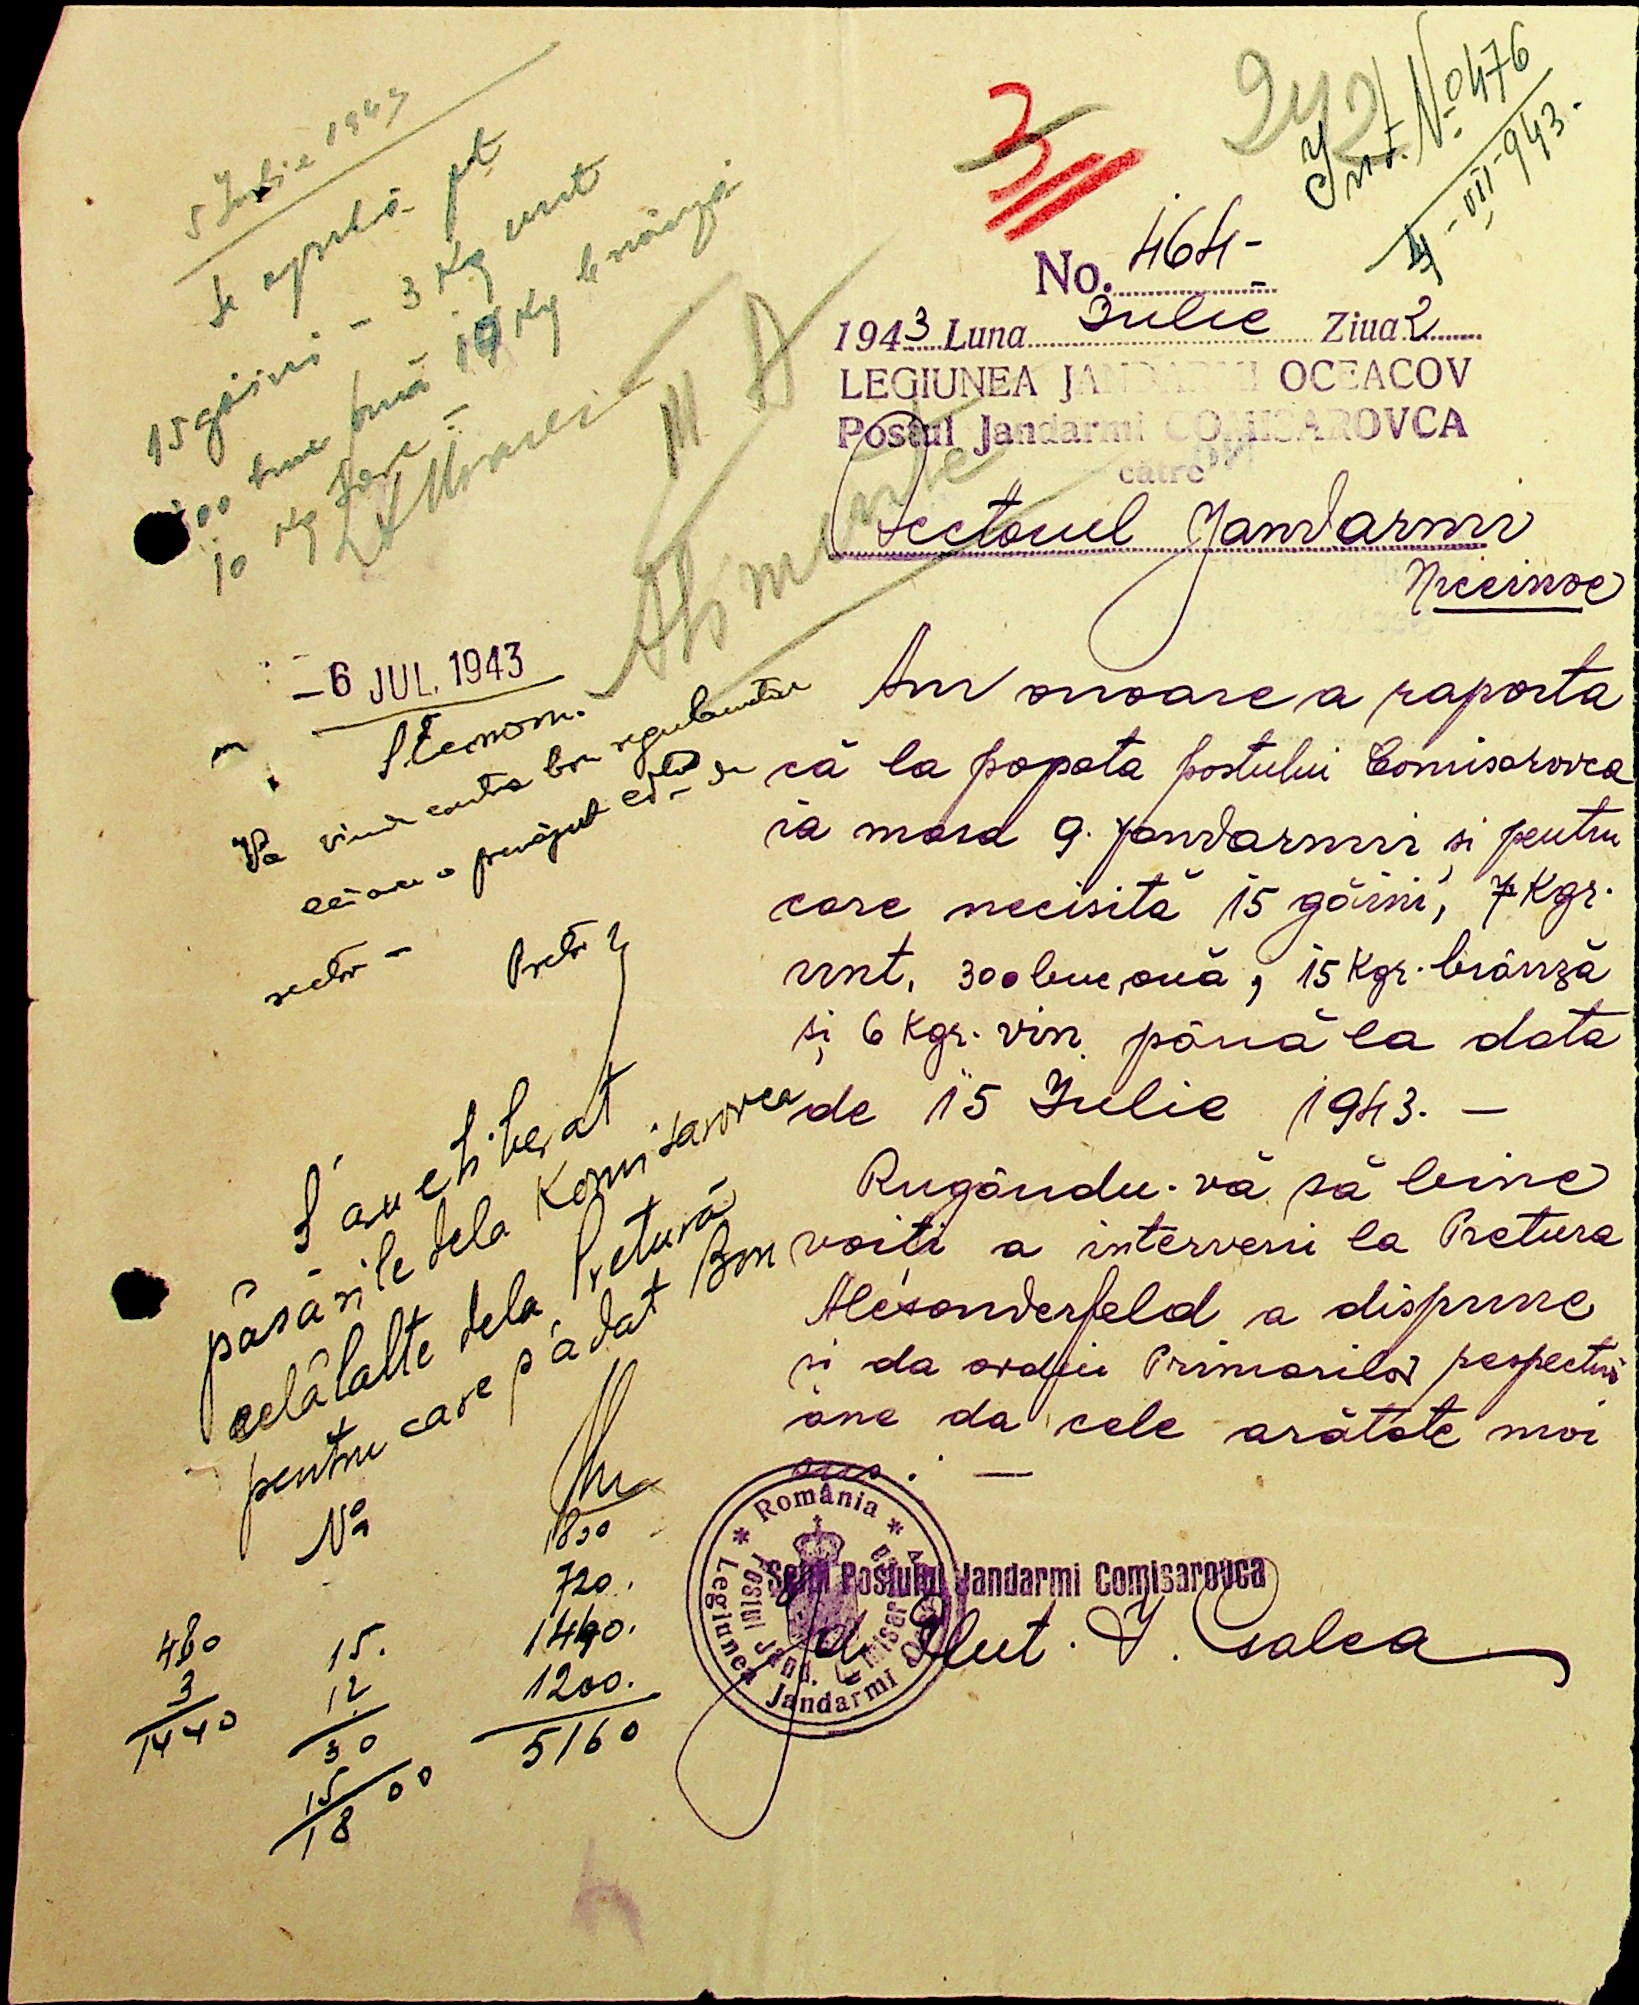 242
Int. No 476
4-VII-943.
3
No. 464-
1943 Luna Iulie Ziua 2
LEGIUNEA JANDARMI OCEACOV
Postul Jandarmi COMISAROVCA
către
Sectorul Jandarmi
Am onoare a raporta
că la popota postului Comisarovca
ia masa 9. jandarmi și pentru
care necisită 15 găini, 7 Kgr.
unt, 300 buc ouă, 15 Kgr. brânză
și 6 Kgr. vin până la data
de 15 Iulie 1943. —
Rugându-vă să bine
voiți a interveni la Pretura
Alexanderfeld a dispune
și da ordin Primarilor respectivi
ane da cele arătate mai
sus. —
Șeful Postului Jandarmi Comisarovca
Plut. I. Csalea
* România *
Legiunea Jandarmi
Postul Jand.
5 Iulie 1943
Se aprobă pt
15 găini - 3 Kg unt
buc ouă 10 Kg brânză
10 Kg
III A
Alimente
-6 JUL. 1943
Va vinde contra bon regulamentar
sector -
Pretor
S'au eliberat
păsările dela Komisarovca
celălalte dela Pretură
pentru care s'a dat Bon
No
1800
720.
1440.
1200.
5160
480
3
1440
15.
12
30
15
18 00